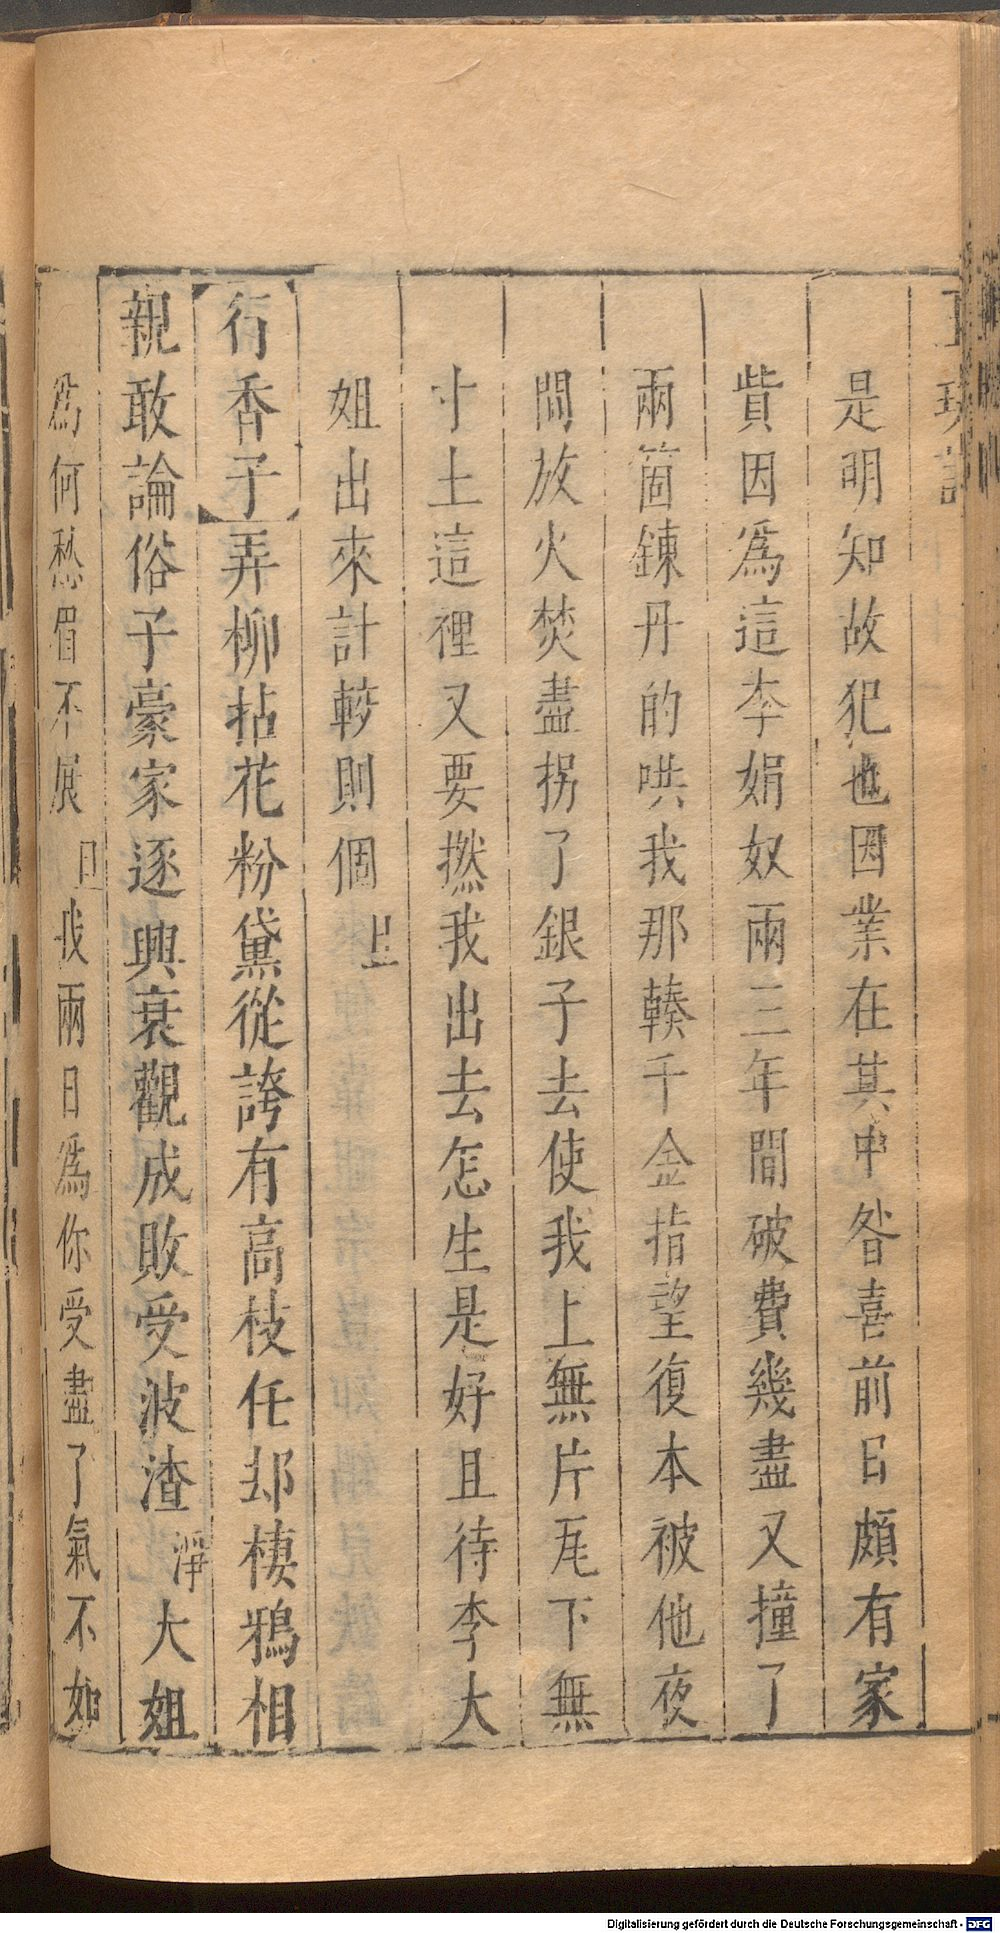 是明知故犯也因業在其中咎喜前日頗有家
貲因爲這李娟奴兩三年間破費幾盡又撞了
兩箇鍊丹的哄我那輳千金指望復本被他夜
間放火焚盡拐了銀子去使我上無片瓦下無
寸土這裡又要撚我出去怎生是好且待李大
姐出來計較則個 旦上
行香子 弄柳拈花粉黛從誇有高枝任却棲鴉相
親敢論俗子豪家逐興衰觀成敗受波渣 淨 大姐
爲何愁眉不展 旦 我兩日爲你受盡了氣不如
Digitalisierung gefördert durch die Deutsche Forschungsgemeinschaft - DFG